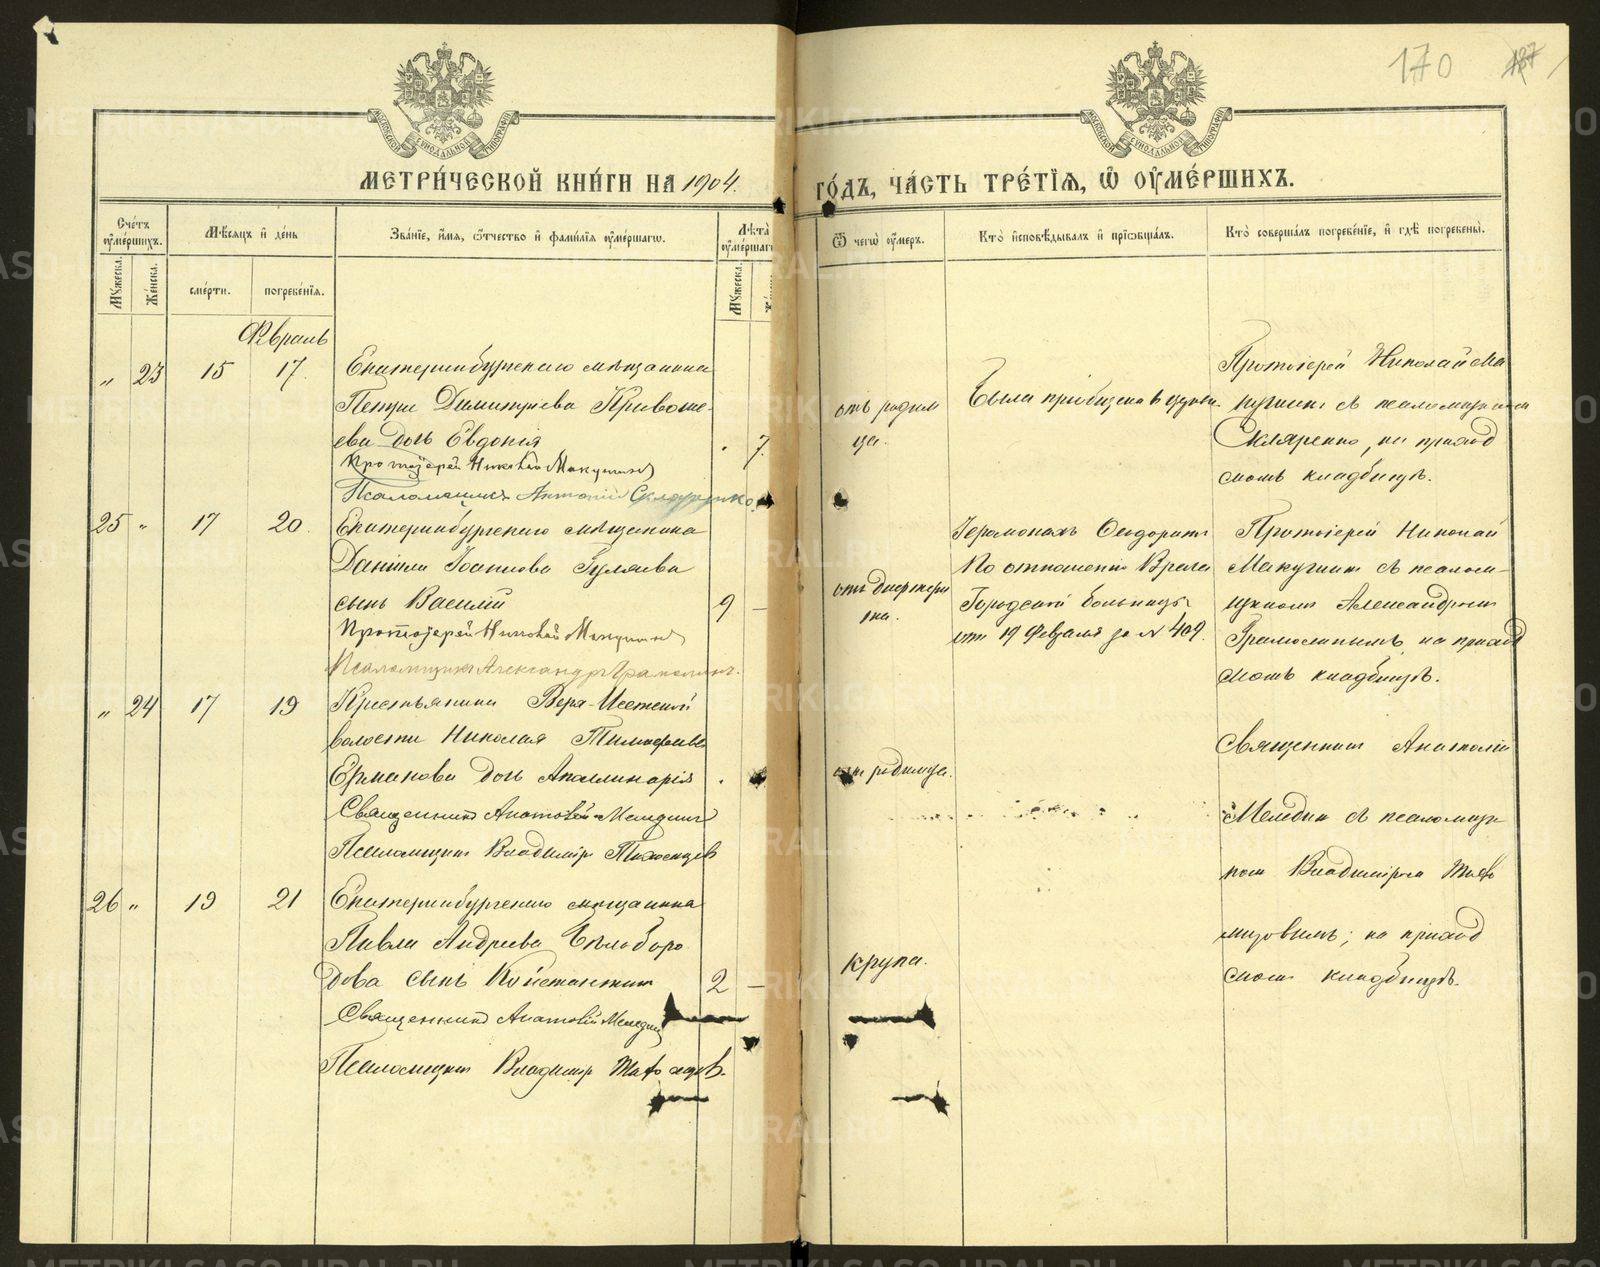 170
187
МОСКОВСКОЙ СѴНОДАЛЬНОЙ ТИПОГРАФІИ
МОСКОВСКОЙ СѴНОДАЛЬНОЙ ТИПОГРАФІИ
МЕТРИ́ЧЕСКОЙ КНИ́ГИ НА 1904.
ГО́ДЪ, ЧА́СТЬ ТРЕ́ТІѦ, Ѽ ОУ҆МЕ́РШИХЪ.
Сче́тъ оу҆ме́ршихъ.
Мꙋ́жеска.
Же́нска.
Мѣ́сѧцъ и҆ де́нь
сме́рти.
погребе́нїѧ.
Зва́нїе, и҆́мѧ, ѻ҆́тчество и҆ фами́лїѧ оу҆ме́ршагѡ.
Лѣ́та оу҆ме́ршаг
Мꙋ́жеска.
Ѿ чегѡ̀ оу҆́меръ.
Кто̀ и҆сповѣ́дывалъ и҆ прїѡбща́лъ.
Кто̀ соверша́лъ погребе́нїе, и҆ гдѣ̀ погребены̀.
Февраль
" 23 15 17. Екатеринбургскаго мѣщанина
Петра Димитріева Кривоше-
ева дочь Евдокія 7.
Протоіерей Николай Макушинъ
Псаломщикъ Антоній Скляренко.
отъ родим
ца.
Была пріобщена
Протоіерей Николай Ма
кушинъ съ псаломщикомъ
Скляренко, на приход
скомъ кладбищѣ.
25 " 17 20. Екатеринбургскаго мѣщанина
Даніила Іоаннова Гуляева
сынъ Василій 9 –
Протоіерей Николай Макушинъ
Псаломщикъ Александръ Грамолинъ.
отъ дифтери
та.
Іеромонахъ Ѳеодоритъ
По отношенію Врача
Городской больницы
отъ 19 Февраля за № 409.
Протоіерей Николай
Макушинъ съ псалом-
щикомъ Александромъ
на приход
скомъ кладбищѣ.
" 24 17 19 Крестьянина Верх-Исетской
волости Николая Тимофеева
Ермакова дочь Аполлинарія
Священникъ Анатолій Меледин
Псаломщикъ Владиміръ
отъ родимца.
Священникъ Анатолій
Меледин съ псаломщи
ком Владиміром
на приход
ском кладбищѣ.
26 " 19 21 Екатеринбургскаго мѣщанина
Павла Андреева Бѣлоборо
дова сынъ Константинъ 2 –
Священникъ Анатолій Меледин
Псаломщикъ Владиміръ
крупа.
METRIKI.GASO-URAL.RU